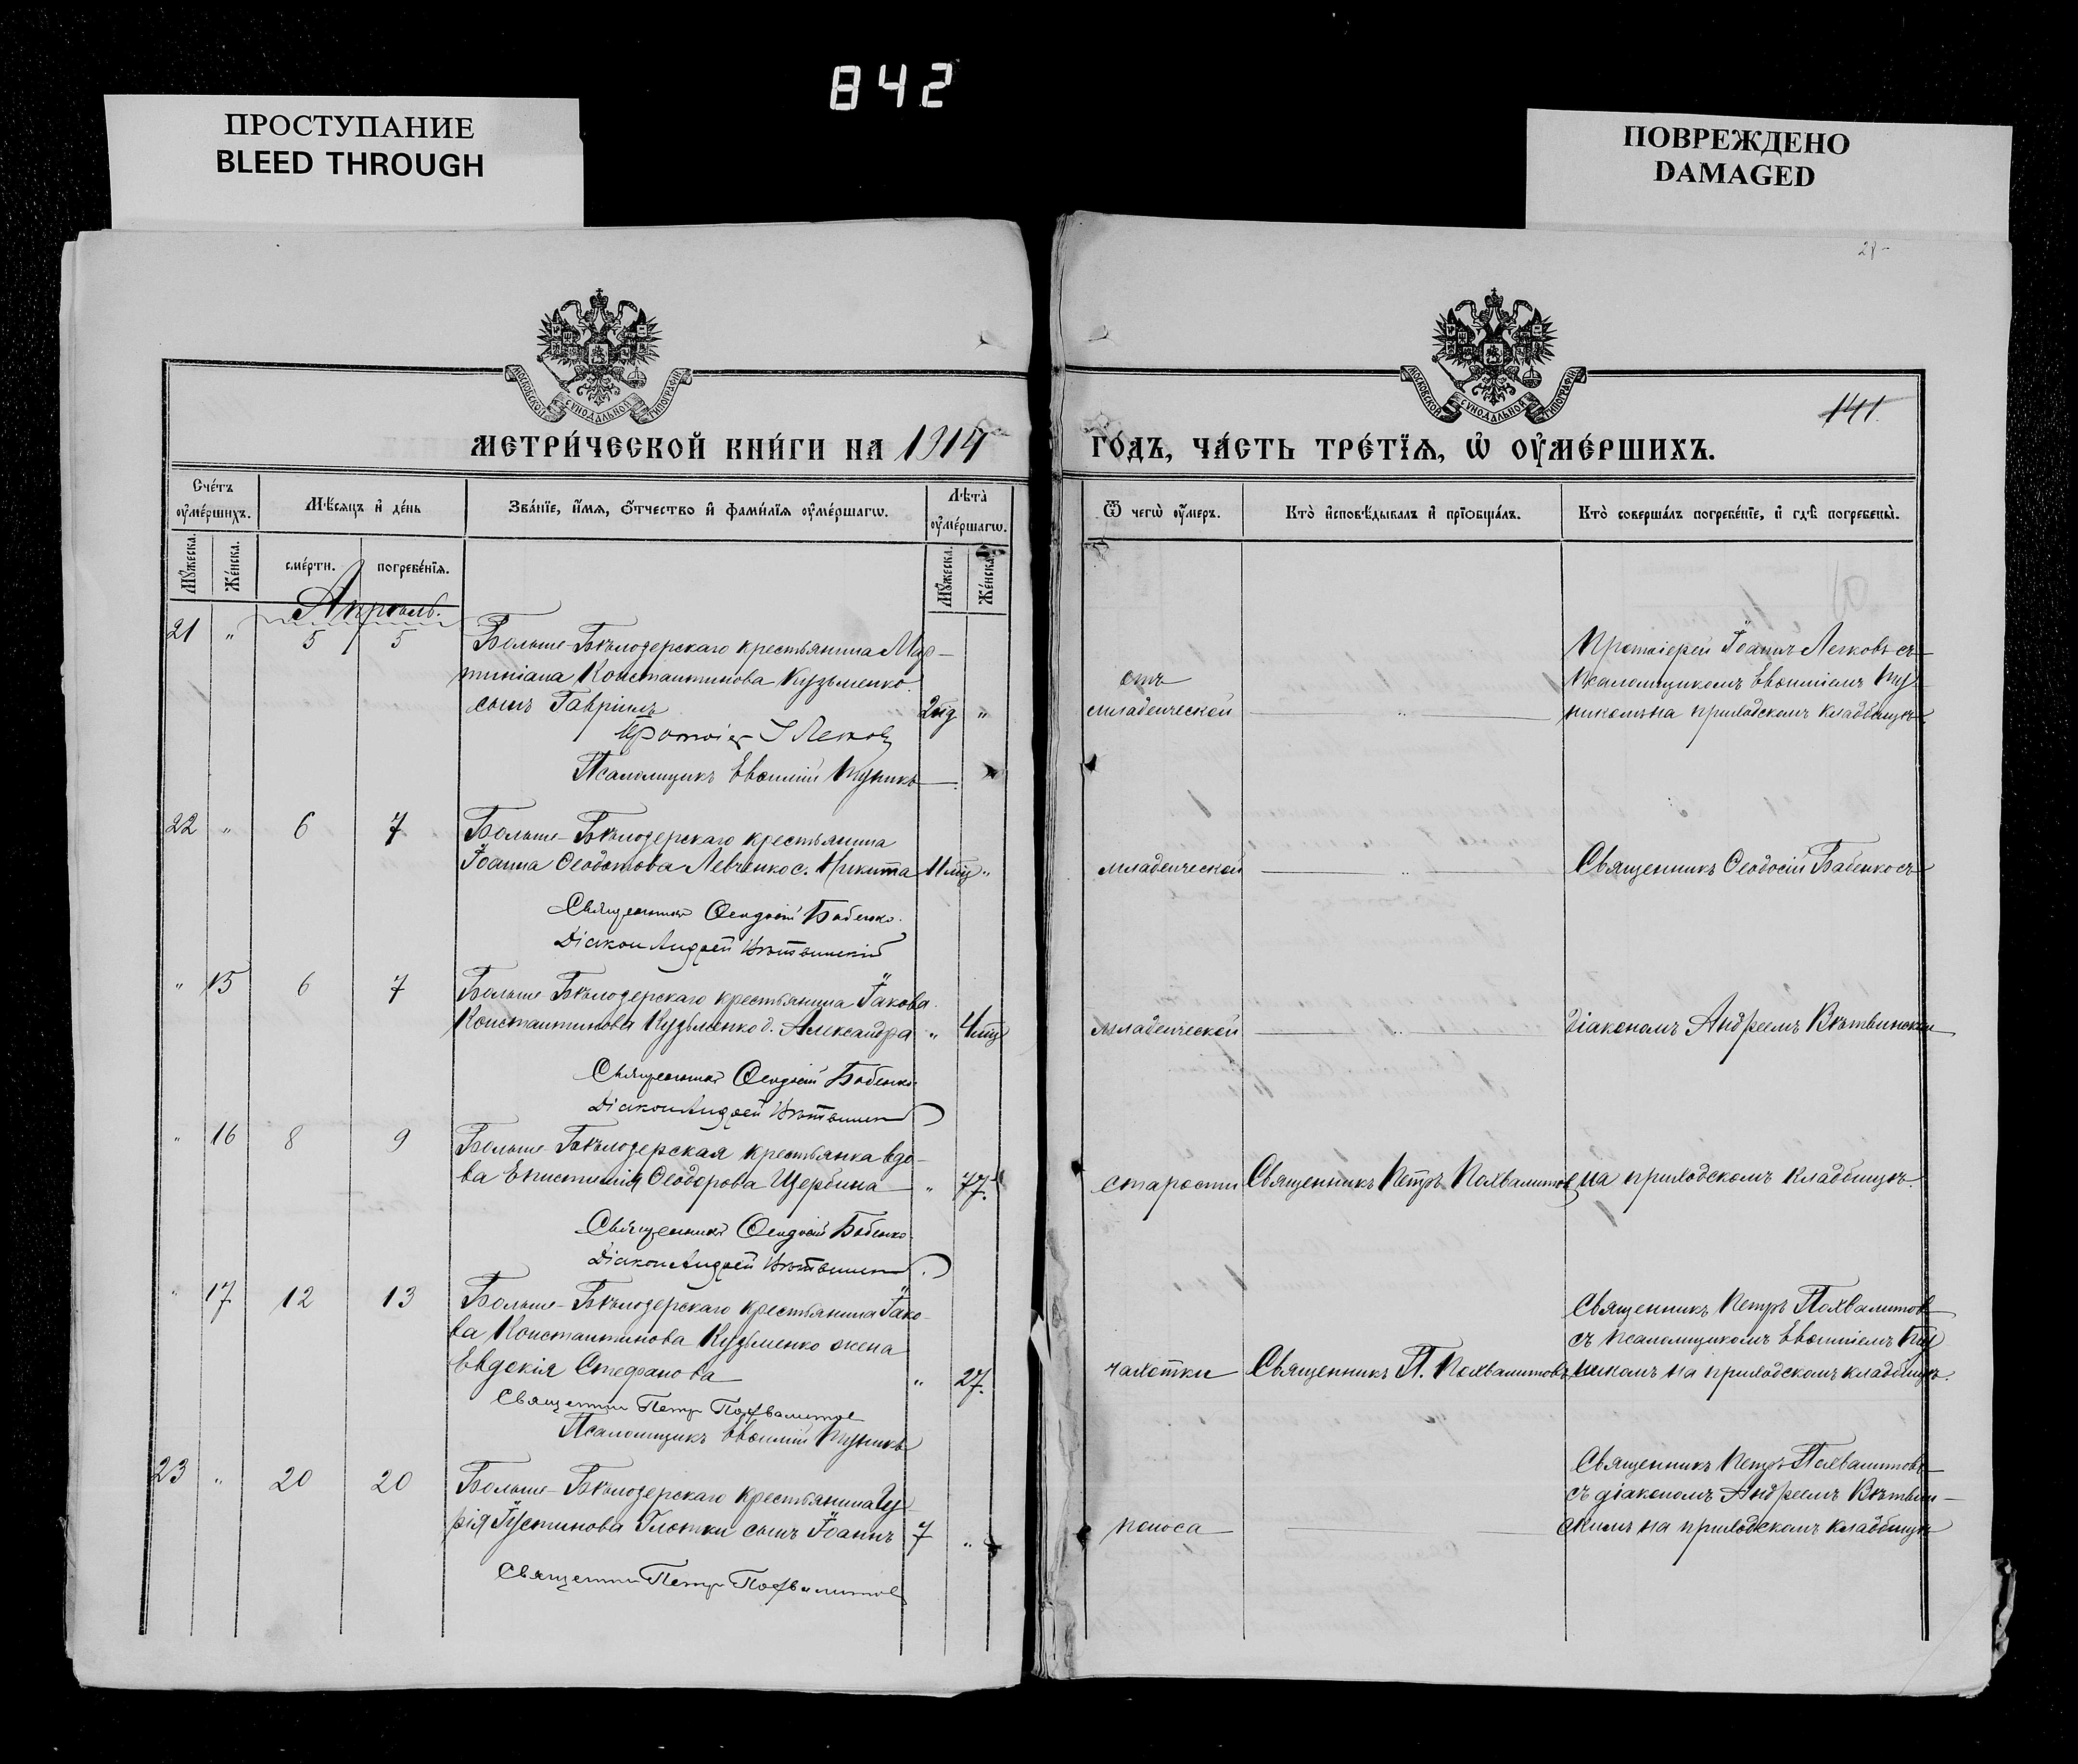 842
ПРОСТУПАНИЕ
BLEED THROUGH
ПОВРЕЖДЕНО
DAMAGED
28-
МОСКОВСКОЙ СѴНОДАЛЬНОЙ ТИПОГРАФІИ
МОСКОВСКОЙ СѴНОДАЛЬНОЙ ТИПОГРАФІИ
141.
МЕТРИ́ЧЕСКОЙ КНИ́ГИ НА 1914
ГО́ДЪ, ЧА́СТЬ ТРЕ́ТЇѦ, Ѡ҆ ОУ҆МЕ́РШИХЪ.
Сче́тъ оу҆ме́ршихъ.
Мѣ́сѧцъ и҆ де́нь
Зва́нїе, и҆́мѧ, ѻ҆́тчество и҆ фами́лїѧ оу҆ме́ршагѡ.
Лѣ̀та оу҆ме́ршагѡ.
Мꙋ́жеска.
Же́нска.
сме́рти.
погребе́нїѧ.
Мꙋ́жеска.
Же́нска.
Ѿ чегѡ̀ оу҆́меръ.
Кто̀ и҆сповѣ́дывалъ и҆ прїѻбща́лъ.
Кто̀ соверша́лъ погребе́нїе, и҆ гдѣ̀ погребены̀.
Апрѣль.
21 " 5 5 Больше-Бѣлозерскаго крестьянина Мар-
тиніана Константинова Кузьменко
сынъ Гавріилъ 2нд "
Протоіер І Легков
Псаломщикъ Евѳимій Пуникъ
отъ
младенческой "
Протоіерей Іоаннъ Легковъ съ
псаломщикомъ Евѳиміемъ Пу-
никомъ на приходскомъ кладбищѣ.
22 " 6 7 Больше-Бѣлозерскаго крестьянина
Іоанна Ѳеодотова Левченко с. Никита 11мц "
Священникъ Ѳеодосій Бабенко.
Діакон Андрей Вѣтвинскій
младенческой "
Священникъ Ѳеодосій Бабенко съ
" 15 6 7 Больше Бѣлозерскаго крестьянина Іакова
Константинова Кузьменко д. Александра " 4мц
Священник Ѳеодосій Бабенко.
Діакон Андрей Вѣтвинск
младенческой "
діакономъ Андреемъ Вѣтвинским
" 16 8 9 Больше-Бѣлозерская крестьянка вдо-
ва Епистимія Ѳеодорова Щербина " 77.
Священник Ѳеодосій Бабенко.
Діакон Андрей Вѣтвинск
старости
Священникъ Петръ Похвалитов
на приходскомъ кладбищѣ.
" 17 12 13 Больше-Бѣлозерскаго крестьянина Іако-
ва Константинова Кузьменко жена
Евдокія Стефанова " 27.
Священни Петр Похвалитов
Псаломщикъ Евѳимій Пуникъ
чахотки
Священникъ П. Похвалитовъ
Священникъ Петръ Похвалитовъ
съ псаломщикомъ Евѳиміемъ Пу
никомъ на приходскомъ кладбищѣ.
23 " 20 20 Больше-Бѣлозерскаго крестьянина Гу-
рія Іустинова Глотки сынъ Іоаннъ 7 "
Священни Петр Похвалитов
поноса
Священникъ Петръ Похвалитовъ
съ діакономъ Андреемъ Вѣтвин-
скимъ на приходскомъ кладбищѣ